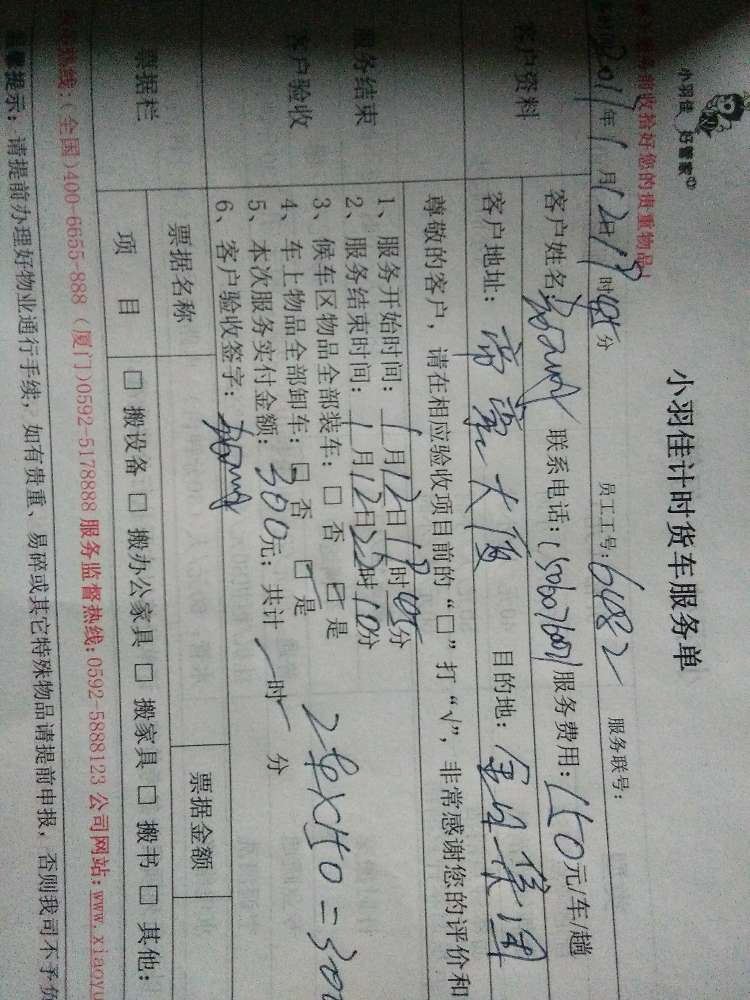 小羽佳 好管家
小羽佳计时货车服务单
收拾好您的贵重物品!
2011年1月12日17时45分 员工工号:6082 服务联号:
客户资料
客户姓名: 联系电话: 服务费用:150元/车/趟
客户地址: 大厦 目的地: 集团
尊敬的客户,请在相应验收项目前的“□”打“√”,非常感谢您的评价和
服务结束
客户验收
1、服务开始时间:1月12日17时45分
2、服务结束时间:1月12日22时10分
3、候车区物品全部装车:□ 否 ☑ 是
4、车上物品全部卸车:□ 否 ☑ 是
5、本次服务实付金额:300元;共计 时 分
2车X150=300
6、客户验收签字:
票据栏
票据名称 票据金额
项 目 □ 搬设备 □ 搬办公家具 □ 搬家具 □ 搬书 □ 其他:
热线:(全国)400-6655-888 (厦门)0592-5178888 服务监督热线:0592-5888123 公司网站:www.xiaoyu
温馨提示:请提前办理好物业通行手续,如有贵重、易碎或其它特殊物品请提前申报,否则我司不予